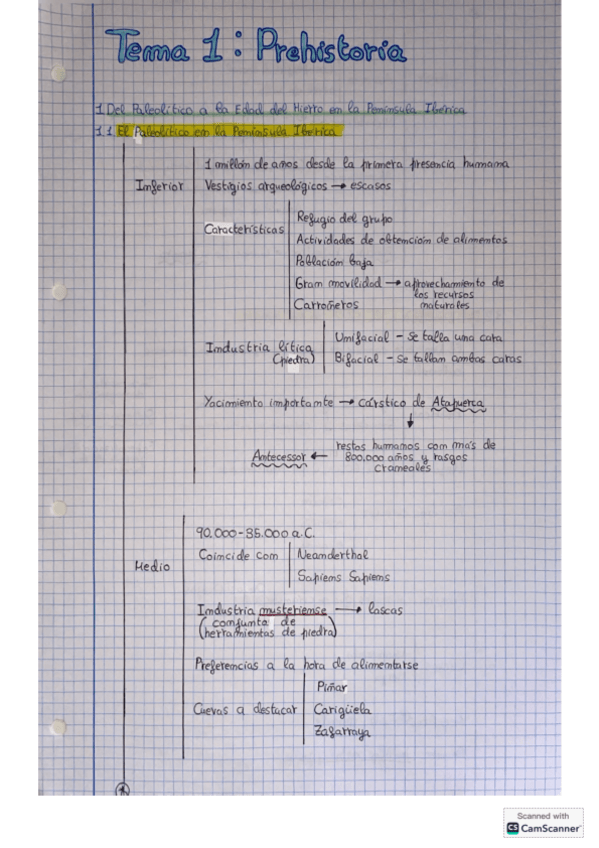 Tema 1: Prehistoria
1 Del Paleolítico a la Edad del Hierro en la Península Ibérica
1.1 El Paleolítico en la Península Ibérica
Inferior
1 millón de años desde la primera presencia humana
Vestigios arqueológicos → escasos
Características
Refugio del grupo
Actividades de obtención de alimentos
Población baja
Gran movilidad → aprovechamiento de
los recursos
naturales
Carroñeros
Industria lítica
(piedra)
Unifacial - Se talla una cara
Bifacial - Se tallan ambas caras
Yacimiento importante → cárstico de Atapuerca
↓
restos humanos con más de
800.000 años y rasgos
craneales
Antecessor ←
Medio
90.000-35.000 a.C.
Coincide con
Neanderthal
Sapiens Sapiens
Industria musteriense → lascas
(conjunto de
herramientas de piedra)
Preferencias a la hora de alimentarse
Cuevas a destacar
Piñar
Carigüela
Zafarraya
1
Scanned with
CS CamScanner